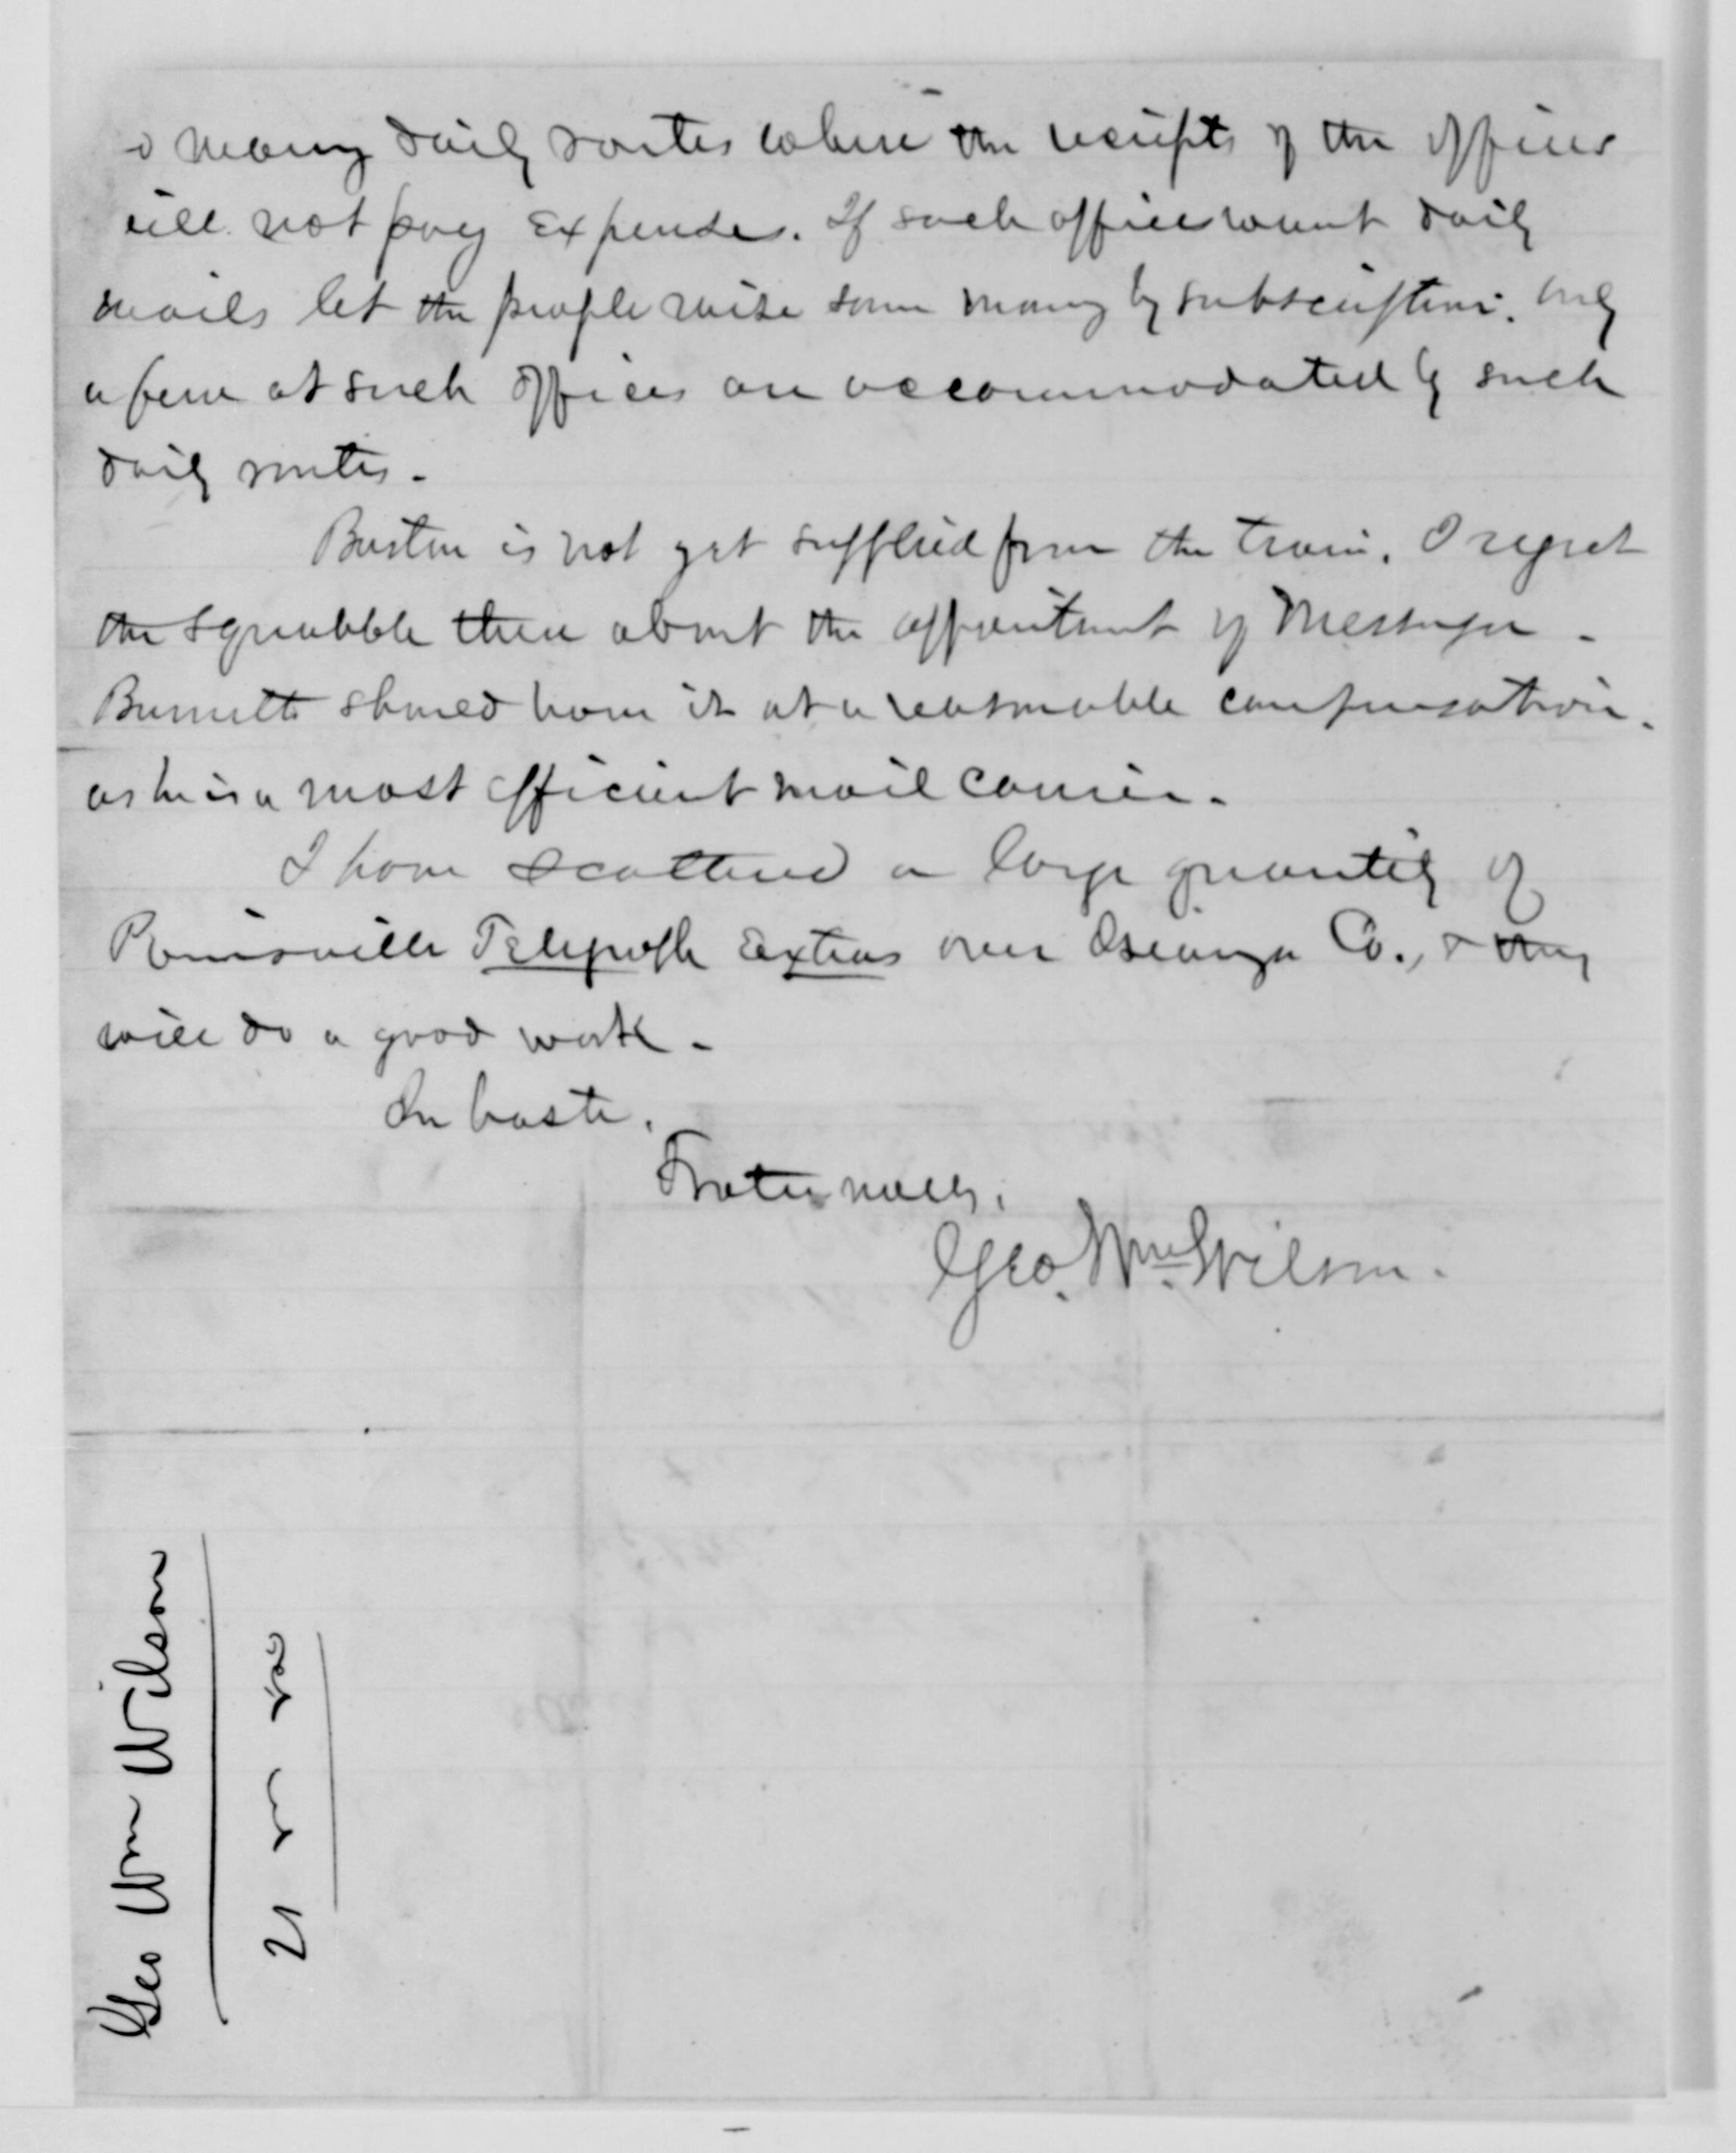 o many daily routes where the receipts of the offices
will not pay expenses. If such offices want daily
mails let the people raise some money by subscription. Only
a few at such offices are accommodated by such
daily routes.
Boston is not yet supplied from the train. I regret
the squabble there about the appointment of Messenger -
Burnett should have it at a reasonable compensation.
as he is a most efficient mail carrier.
I have scattered a large quantity of
Telegraph Extras over Oswego Co., & they
will do a good work -
In haste,
Fraternally,
Geo. Wm. Wilson.
Geo Wm Wilson
21